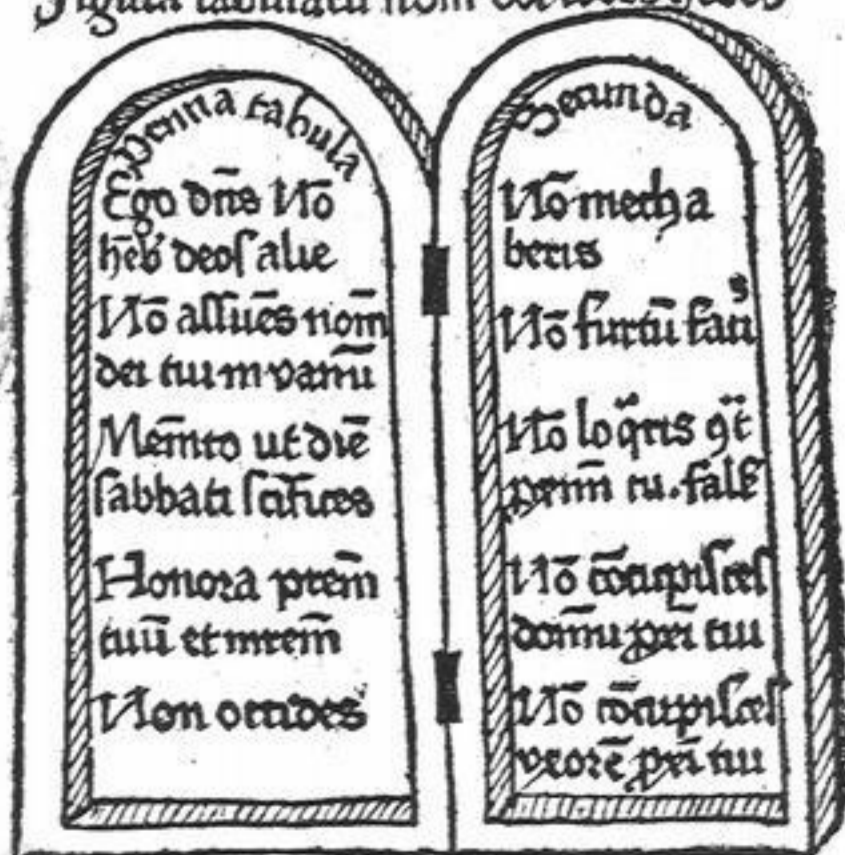 Figura tabulaꝛū
Prima tabula
Ego dn̄s Nō
hēb deoſ alie
Nō aſſūes nom̄
dei tui in vanū
Mem̄to ut diē
ſabbati ſcīfices
Honora ptem̄
tuū et mrem̄
Non occides
Secunda
Nō mecha
beris
Nō furtū faciˢ
Nō loq̄ris 9ͭ
pxim̄ tu. falſ
Nō cōcupiſces
domū pxī tui
Nō cōcupiſces
uxorē pxī tui